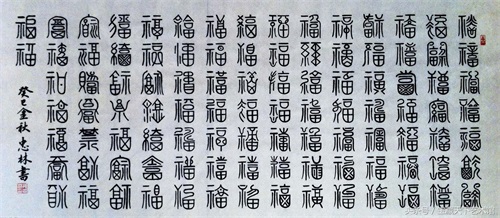 福福福福福福福
福福福福福福福
福福福福福福福
福福福福福福福
福福福福福福福
福福福福福福福
福福福福福福福
福福福福福福福
福福福福福福福
福福福福福福福
福福福福福福福
福福福福福福福
福福福福福福福
福福福福福福福
福福
癸巳金秋惠林書